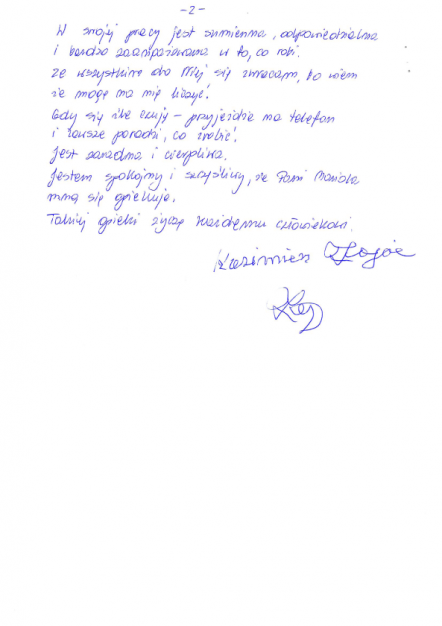 - 2 -
W swojej pracy jest sumienna, odpowiedzialna
i bardzo zaangażowana w to, co robi.
Ze wszystkim do Niej się zwracam, bo wiem
że mogę na nią liczyć!
Gdy się źle czuję - przyjeżdża na telefon
i zawsze poradzi, co zrobić!
Jest zaradna i cierpliwa.
Jestem spokojny i szczęśliwy, że Pani
mną się opiekuje.
Takiej opieki życzę każdemu człowiekowi.
Kazimierz